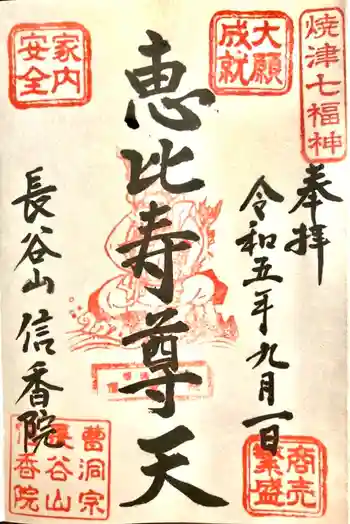 焼津七福神
奉拝
令和五年九月一日
大願
成就
商売
繁盛
恵比寿尊天
家内
安全
長谷山信香院
曹洞宗
長谷山
信香院